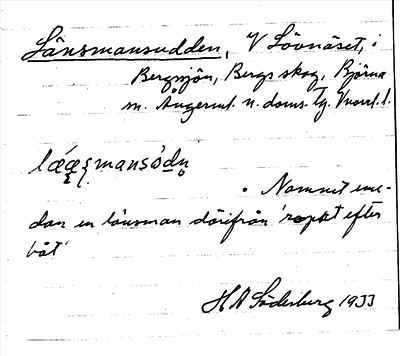 Länsmansudden, V Lövnäset, i
Bergsjön, Bergs skog, Björna
sn. Ångerml. n. doms. tg. Vnorrl. l.
lǽęʂmansòdn̥
. Namnet eme-
dan en länsman därifrån 'ropat efter
båt'
H A Söderburg 1933